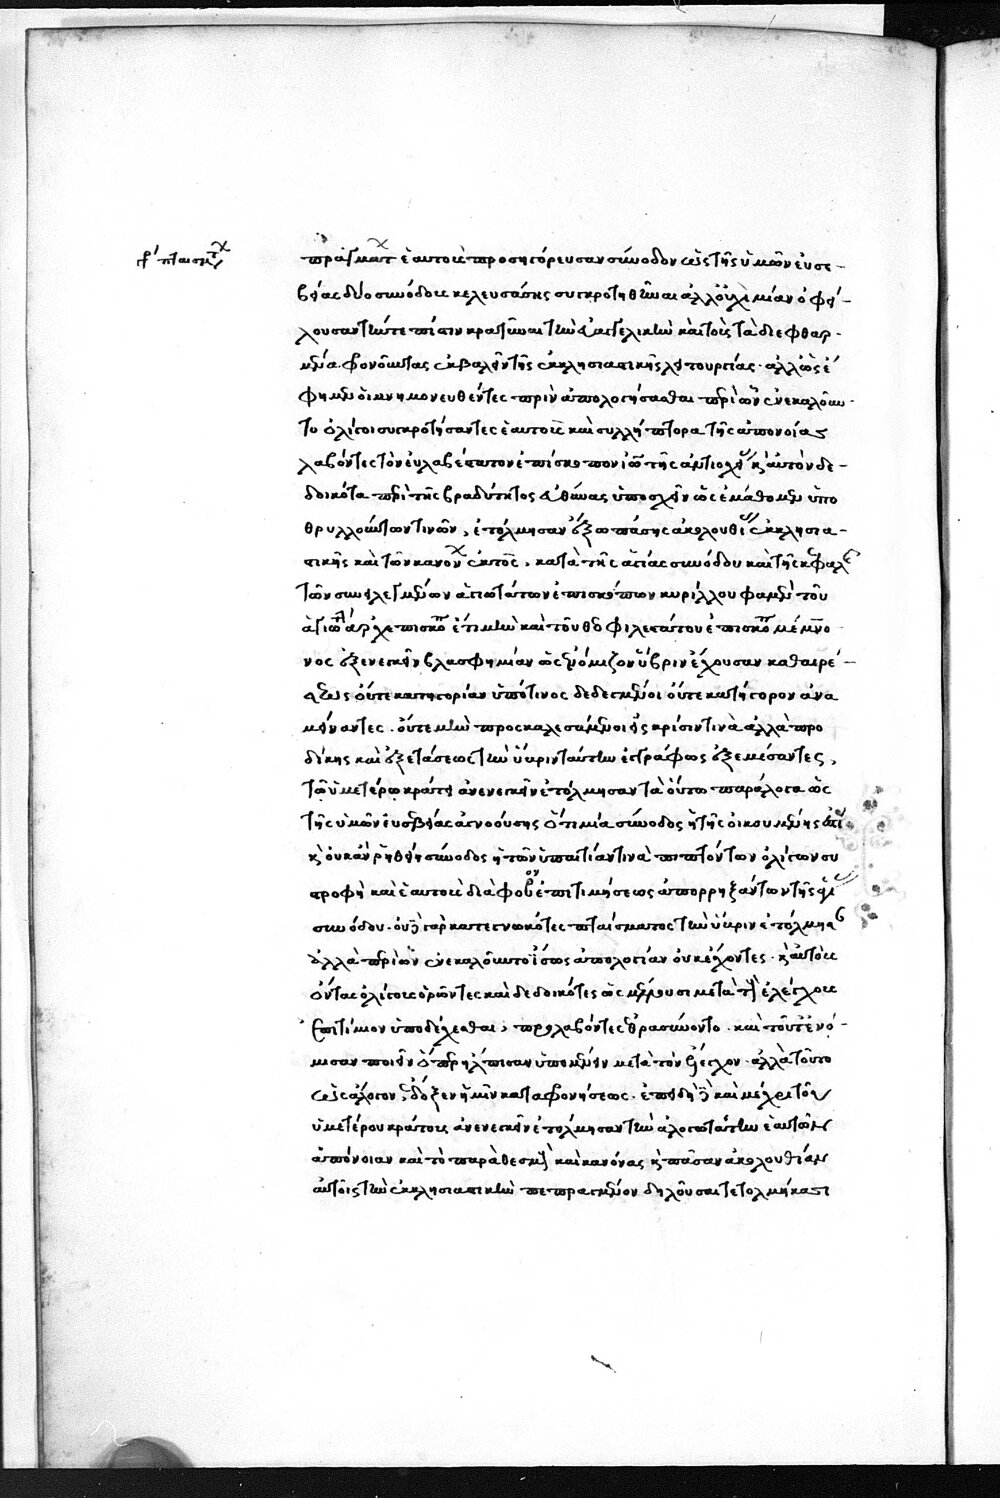 γρ πταισμάτων
πραγμάτων ἑαυτοὺς προσηγόρευσαν σύνοδον ὡς τῆς ὑμῶν εὐσε-
βείας δύο συνόδους κελευσάσης συγκροτηθῆναι ἀλλ' οὐχὶ μίαν ὀφεί-
λουσαν τήν τε πίστιν κρατῦναι τὴν εὐαγγελικὴν καὶ τοὺς τὰ διεφθαρ-
μένα φρονοῦντας ἐκβαλεῖν τῆς ἐκκλησιαστικῆς λειτουργίας. ἀλλ' ὡς ἔ-
φημεν οἱ μνημονευθέντες πρὶν ἀπολογήσασθαι περὶ ὧν ἐνεκαλοῦν-
το ὀλίγοι συγκροτήσαντες ἑαυτοὺς καὶ συλλήπτορα τῆς ἀπονοίας
λαβόντες τὸν εὐλαβέστατον ἐπίσκοπον ἰω τῆς ἀντιοχείας καὶ αὐτὸν δε-
δοικότα περὶ τῆς βραδύτητος εὐθύνας ὑποσχεῖν ὡς ἐμάθομεν ὑπὸ
θρυλλούντων τινῶν, ἐτόλμησαν ἔξω πάσης ἀκολουθίας ἐκκλησια-
στικῆς καὶ τῶν κανόνων ἐκτὸς, κατὰ τῆς ἁγίας συνόδου καὶ τῆς κεφαλῆς
τῶν συνειλεγμένων ἁγιωτάτων ἐπισκόπων κυρίλλου φαμὲν τοῦ
ἁγιωτάτου ἀρχιεπισκόπου ἔτι μὴν καὶ τοῦ θεοφιλεστάτου ἐπισκόπου μέμνο-
νος ἐξενεγκεῖν βλασφημίαν ὡς ἐνόμιζον ὕβριν ἔχουσαν καθαιρέ-
σεως οὔτε κατηγορίαν ὑπό τινος δεδεγμένοι οὔτε κατήγορον ἀνα
μείναντες. οὔτε μὴν προσκαλεσάμενοι εἰς κρίσιν τινὰ ἀλλὰ πρὸ
δίκης καὶ ἐξετάσεως τὴν ὕβριν ταύτην ἐγγράφως ἐξεμέσαντες,
τῷ ὑμετέρῳ κράτει ἀνενεγκεῖν ἐτόλμησαν τὰ οὕτω παράλογα ὡς
τῆς ὑμῶν εὐσεβείας ἀγνοούσης ὅτι μία σύνοδος ἡ τῆς οἰκουμένης ἐστὶ
καὶ οὐκ ἂν ῥηθείη σύνοδος ἡ τῶν ὑπ' αἰτίαν τινὰ πιπτόντων ὀλίγων συ
στροφὴ καὶ ἑαυτοὺς διὰ φόβον ἐπιτιμήσεως ἀπορρηξάντων τῆς ἁγίας
συνόδου. οὐ γὰρ κατεγνωκότες πταίσματος τὴν ὕβριν ἐτόλμησαν
ἀλλὰ περὶ ὧν ἐνεκαλοῦντο ἴσως ἀπολογίαν οὐκ ἔχοντες. καὶ αὐτοὺς
ὄντας ὀλίγους ὁρῶντες καὶ δεδοικότες ὡς μέλλουσι μετὰ τοὺς ἐλέγχους
ἐπιτίμιον ὑποδέχεσθαι, προλαβόντες ἐθρασύνοντο. καὶ τοῦτ' ἐνό-
μισαν ποιεῖν ὅπερ ἤλπισαν ὑπομένειν μετὰ τὸν ἔλεγχον. ἀλλὰ τοῦτο
ὡς ἄλογον, ἔδοξεν ἡμῖν καταφρονήσεως. ἐπειδὴ δὲ καὶ μέχρι τοῦ
ὑμετέρου κράτους ἀνενεγκεῖν ἐτόλμησαν τὴν ἀλογωτάτην ἑαυτῶν
ἀπόνοιαν καὶ τὸ παρὰ θεσμοὺς καὶ κανόνας καὶ πᾶσαν ἀκολουθίαν
αὐτοῖς τὴν ἐκκλησιαστικὴν πεπραγμένον δηλοῦσαι τετολμήκασι